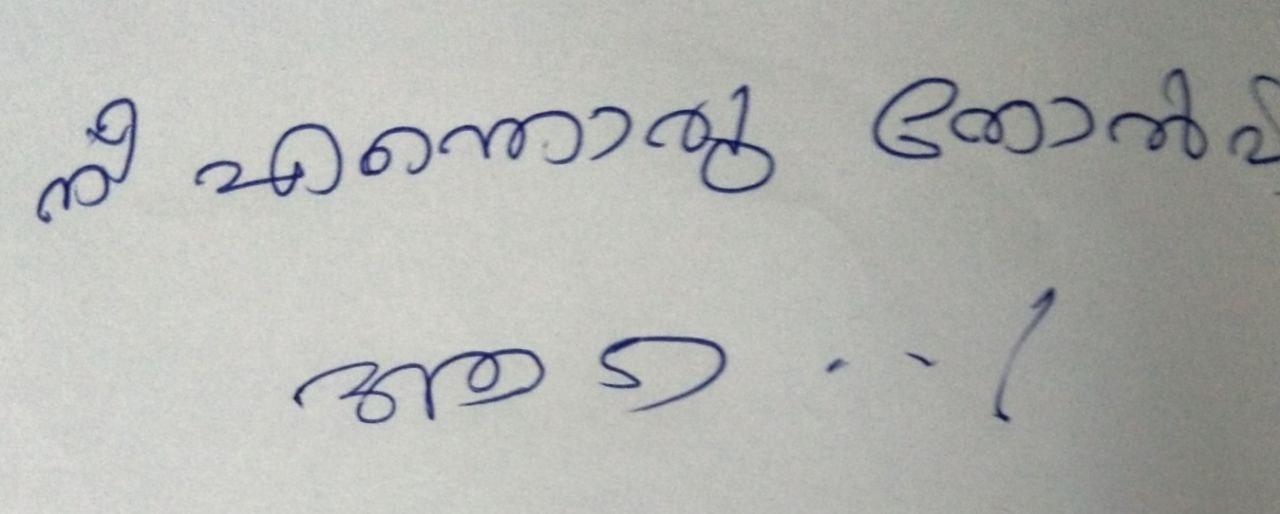 നീ എന്തൊരു തോൽവി
ആടാ..!